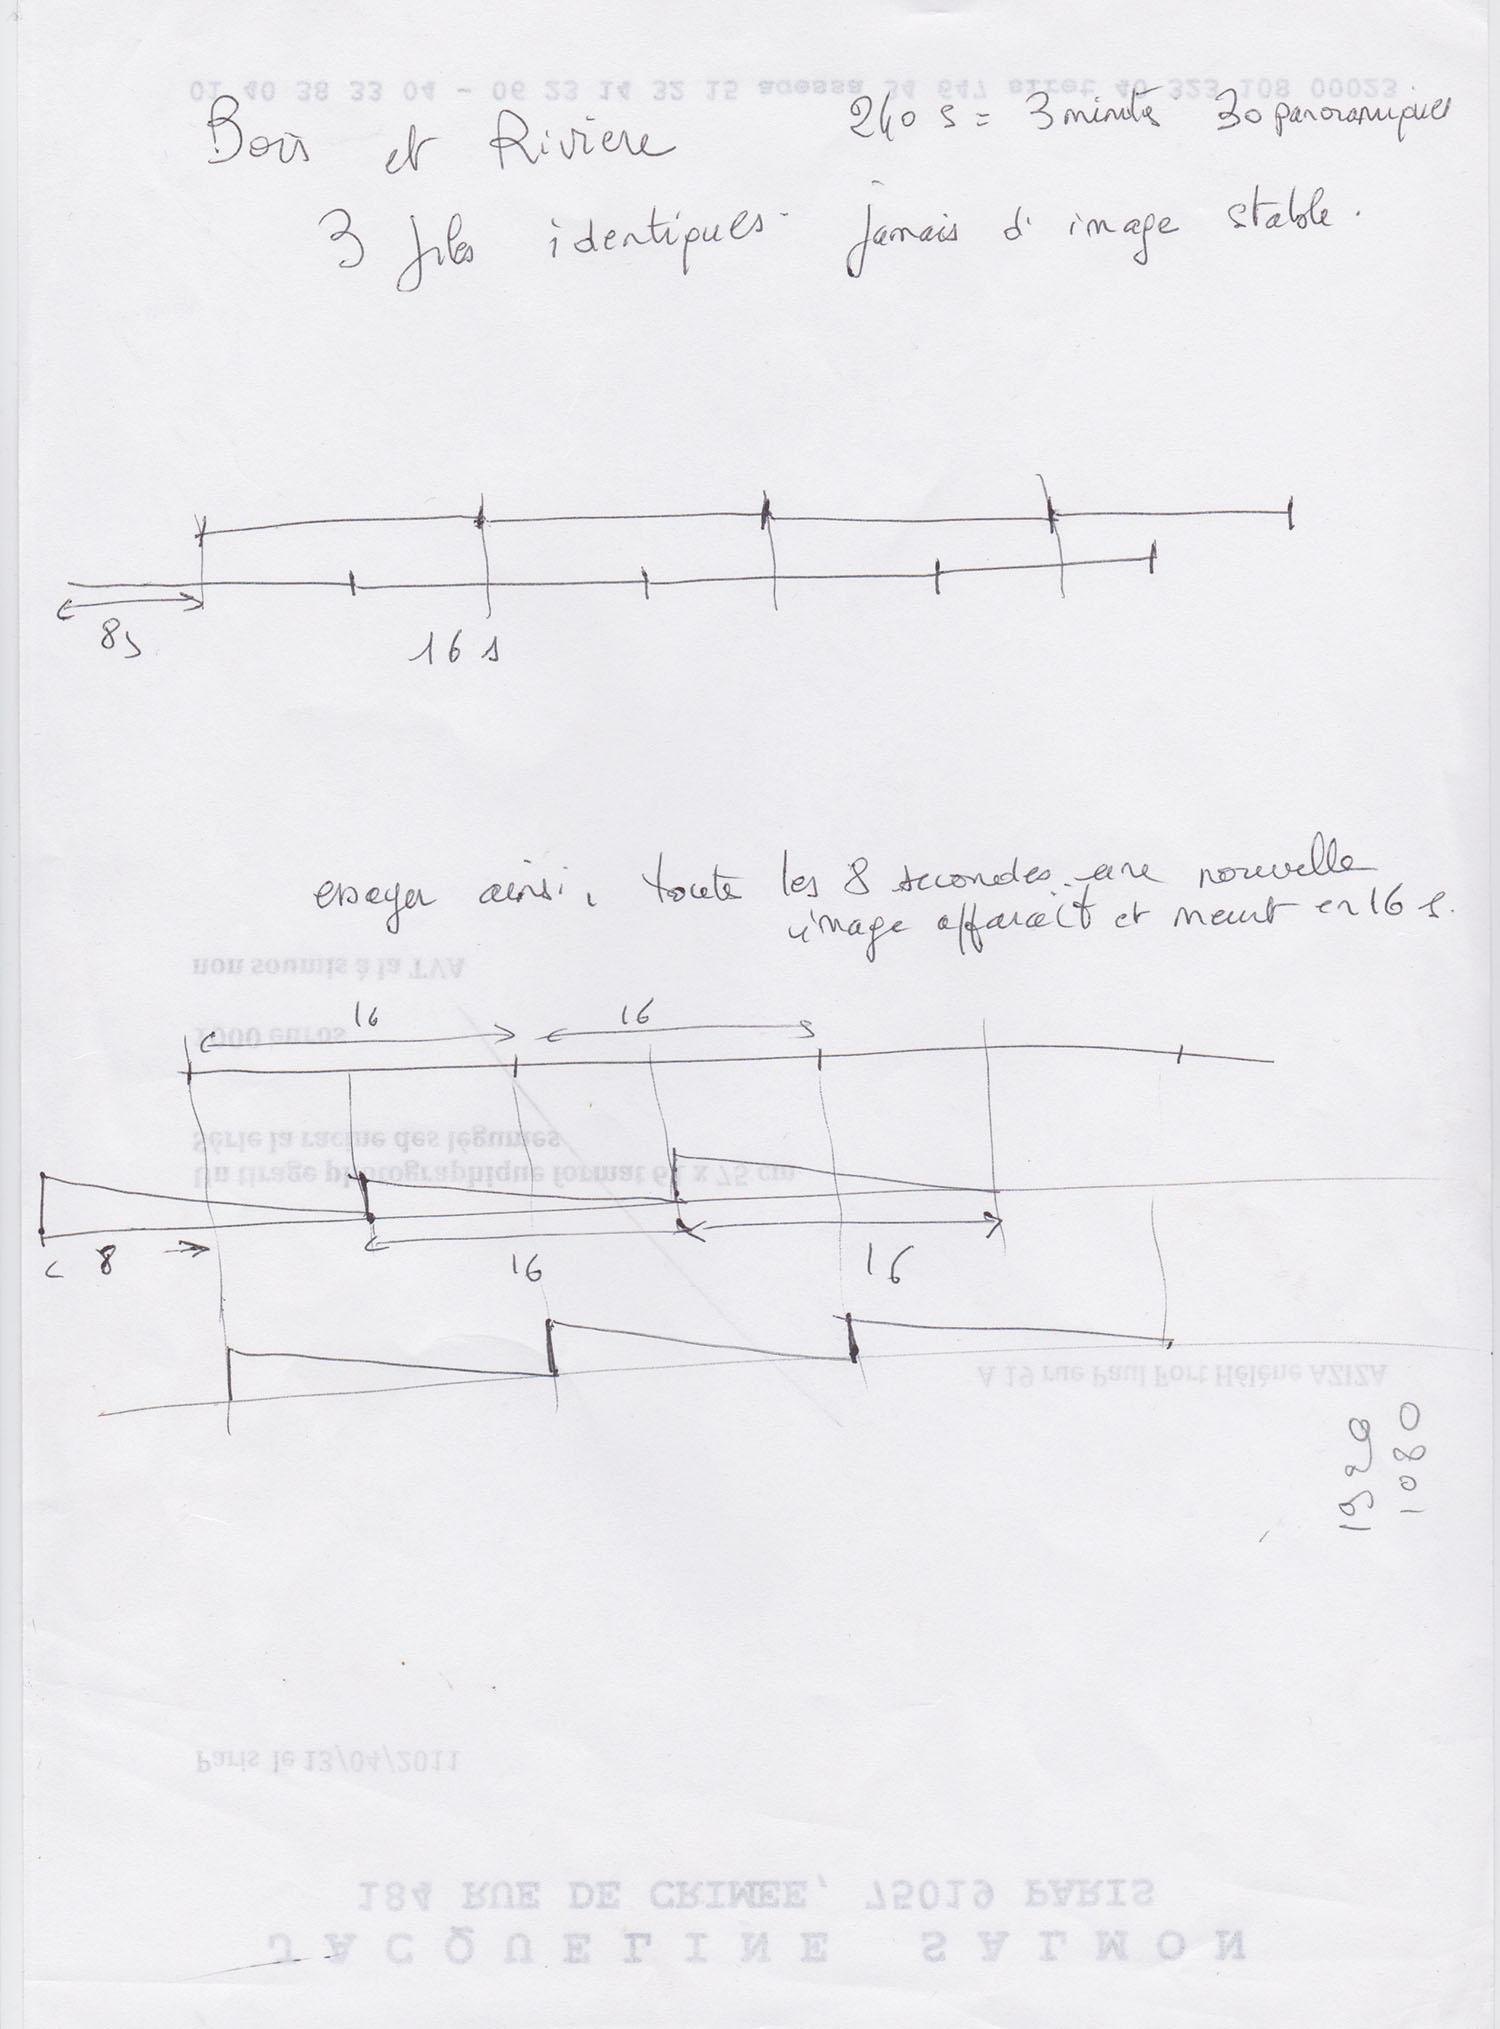 01 40 38 33 04 - 06 23 14 32 15 agessa 34 647 siret 40 323 108 00023
Bois et Riviere
240 s = 3 minutes 30 panoramiques
3 fils identiques. jamais d'image stable.
8s
16 s
essayer ainsi, toute les 8 secondes une nouvelle
image apparaît et meurt en 16 s.
non soumis à la TVA
16 16
1000 euros
Série la racine des légumes
Un tirage photographique format 61 x 75 cm
8 16 16
A 19 rue Paul Fort Hélène AZIZA
1920
1080
Paris le 13/04/2011
184 RUE DE CRIMEE, 75019 PARIS
JACQUELINE SALMON